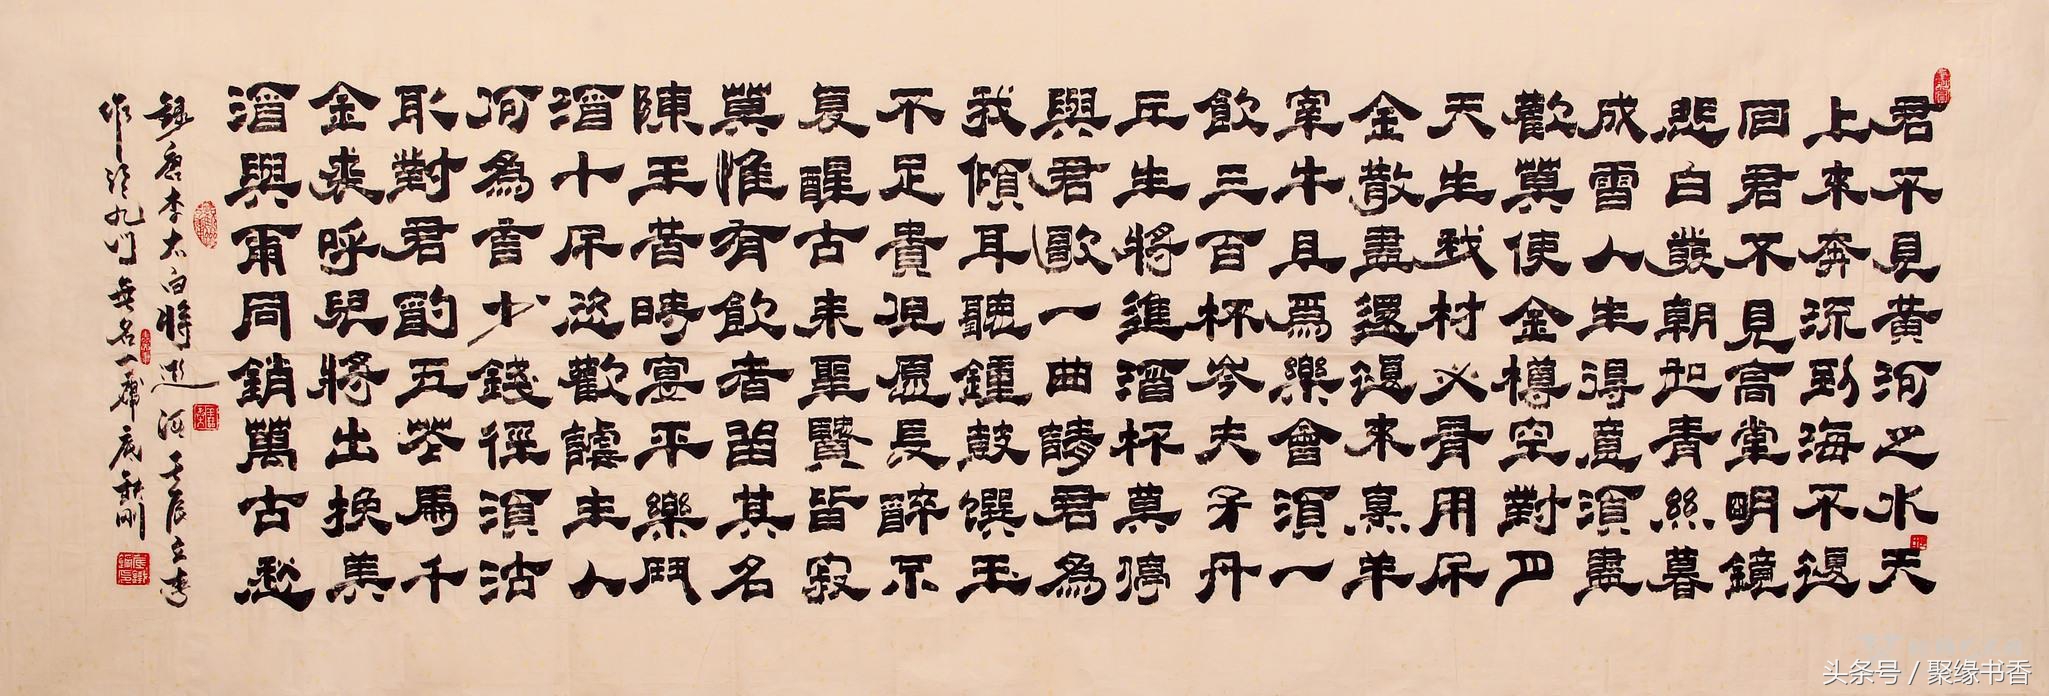 君不見黃河之水天
上來奔流到海不復
回君不見高堂明鏡
悲白髮朝如青絲暮
成雪人生得意須盡
歡莫使金樽空對月
天生我材必有用千
金散盡還復來烹羊
宰牛且為樂會須一
飲三百杯岑夫子丹
丘生將進酒杯莫停
與君歌一曲請君為
我傾耳聽鐘鼓饌玉
不足貴但願長醉不
復醒古來聖賢皆寂
莫惟有飲者留其名
陳王昔時宴平樂鬥
酒十千恣歡謔主人
何為言少錢徑須沽
取對君酌五花馬千
金裘呼兒將出換美
酒與爾同銷萬古愁
錄唐李太白將進酒壬辰立春
作於九門無名一廬
头条号 / 聚缘书香